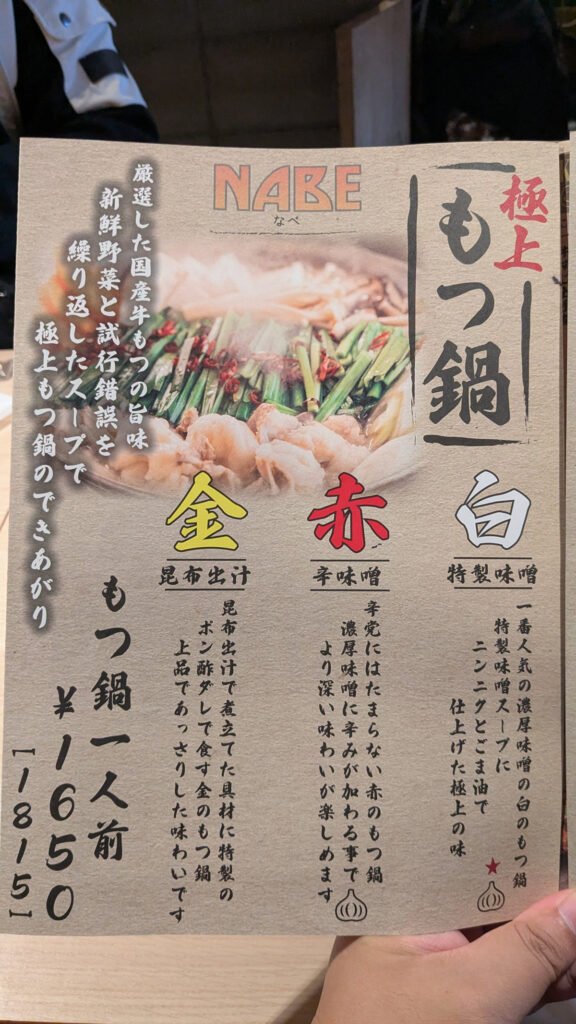 極上
もつ鍋
NABE
なべ
厳選した国産牛もつの旨味
新鮮野菜と試行錯誤を
繰り返したスープで
極上もつ鍋のできあがり
白
特製味噌
一番人気の濃厚味噌の白のもつ鍋
特製味噌スープに
ニンニクとごま油で
仕上げた極上の味
赤
辛味噌
辛党にはたまらない赤のもつ鍋
濃厚味噌に辛みが加わる事で
より深い味わいが楽しめます
金
昆布出汁
昆布出汁で煮立てた具材に特製の
ポン酢ダレで食す金のもつ鍋
上品であっさりした味わいです
もつ鍋一人前
¥1650
[1815]